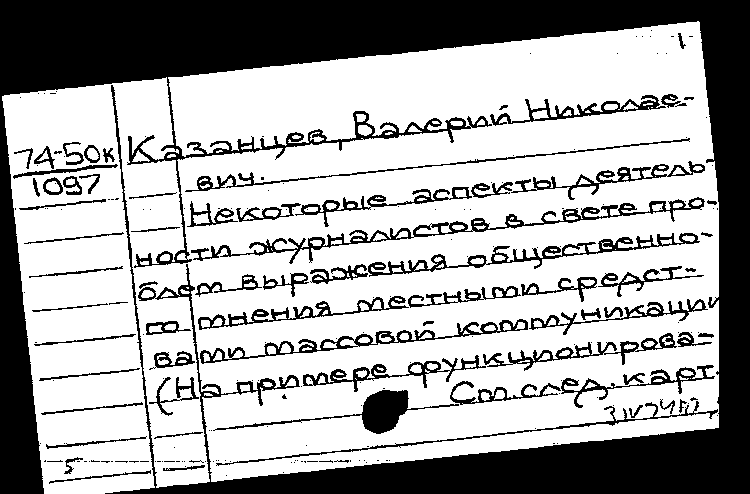 1
74-50к
1097
Казанцев, Валерий Николае-
вич.
Некоторые аспекты деятель-
ности журналистов в свете про-
блем выражения общественно-
го мнения местными средст-
вами массовой коммуникации
(На примере функционирова-
См. след. карт.
5